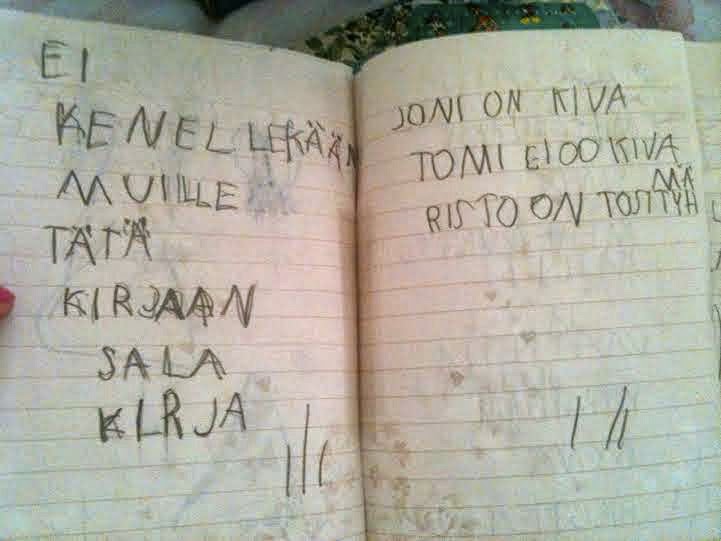 EI
KENELLEKÄÄN
MUILLE
TÄTÄ
KIRJAAN
SALA
KIRJA
JONI ON KIVA
TOMI EI OO KIVA
RISTO ON TOSTYH
MÄ